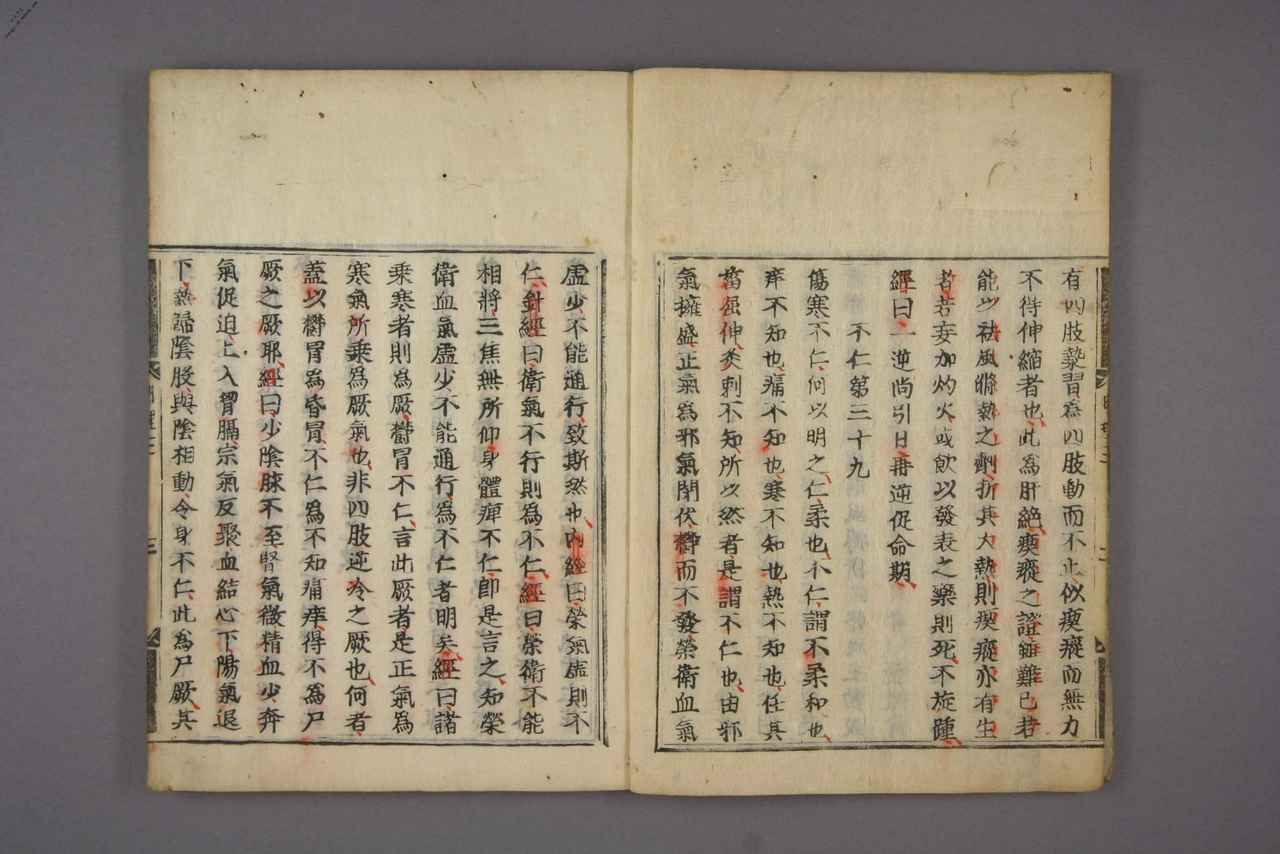 有四肢漐習爲四肢動而不止似瘈瘲而無力
不得伸縮者也此爲肝絶瘈瘲之證雖難已若
能以祛風滌熱之劑折其大熱則瘈瘲亦有生
者若妄加灼火或飲以發表之藥則死不旋踵
經曰一逆尚引日再逆促命期
不仁第三十九
傷寒不仁何以明之仁柔也不仁謂不柔和也
痒不知也痛不知也寒不知也熱不知也任其
屈伸灸刺不知所以然者是謂不仁也由邪
氣擁盛正氣爲邪氣閉伏欝而不發榮衛血氣
虛少不能通行致斯然也內經曰榮氣虛則不
仁針經曰衛氣不行則爲不仁經曰榮衛不能
相將三焦無所仰身體痺不仁卽是言之知榮
衛血氣虛少不能通行爲不仁者明矣經曰諸
乘寒者則爲厥欝冒不仁言此厥者是正氣爲
寒氣所乘爲厥氣也非四肢逆冷之厥也何者
蓋以欝冒爲昏冒不仁爲不知痛痒得不爲尸
厥之厥耶經曰少陰脉不至腎氣微精血少奔
氣促迫上入胷膈宗氣反聚血結心下陽氣退
下熱歸陰股與陰相動令身不仁此爲尸厥其